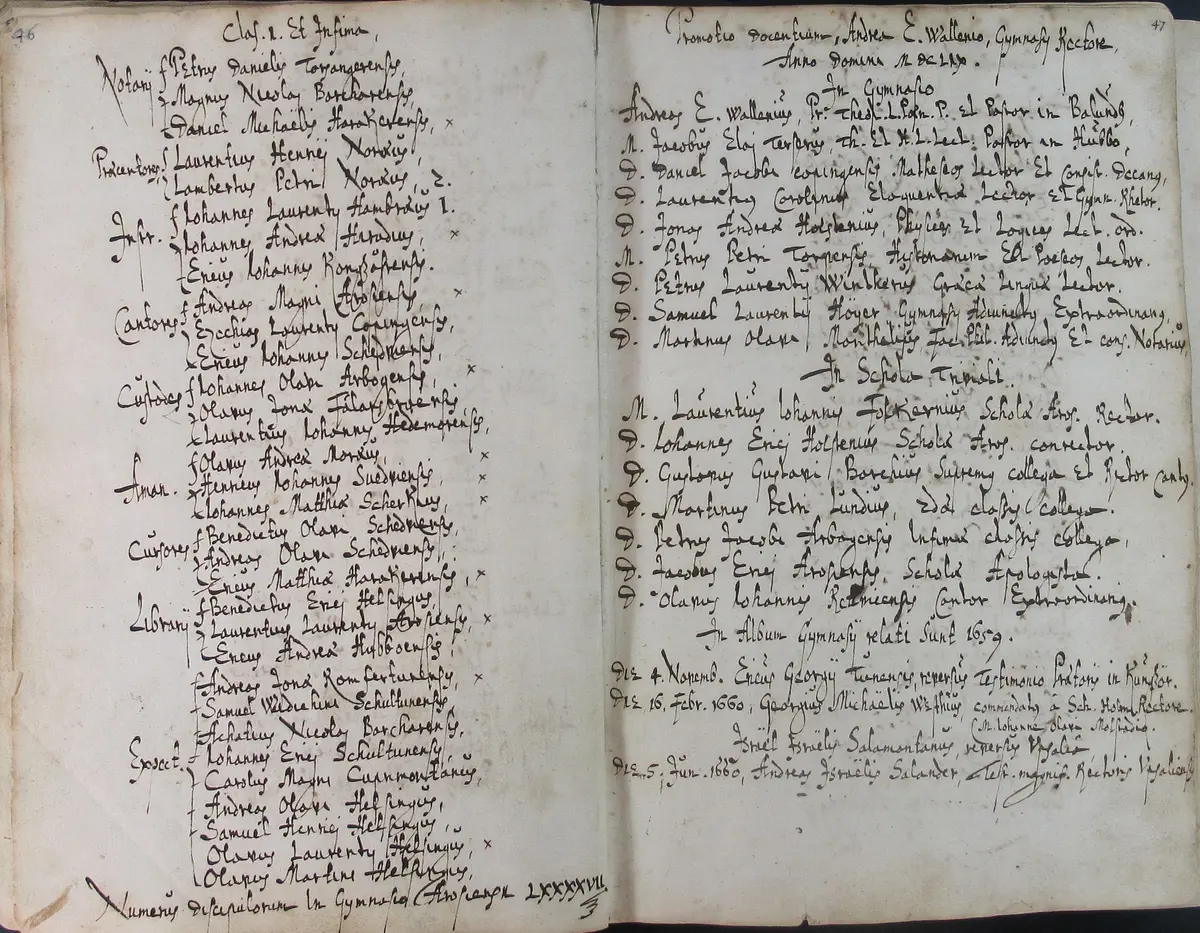 46
Clas. 1. Et Infima,
Notarij Petrus Danielis Torsangerensis,
Magnus Nicolaj Barcharensis,
Daniel Michaëlis Harakerensis, ×
Præcentores Laurentius Henrici Noræus,
Lambertus Petri Noræus, 2.
Johannes Laurentij Hambræus 1.
Infr. Johannes Andreæ Hæradius, ×
Ericus Johannis
Andreas Magni Arosiensis, ×
Cantores Ezechias Laurentij Copingensis,
Ericus Johannis Schedviensis,
Custodes Johannes Olavi Arbogensis, ×
Olavus Jonæ
Laurentius Johannis Hedemorensis,
Olavus Andreæ Moræus, ×
Aman. Henricus Johannis Suedviensis, ×
Johannes Matthiæ Scherkius, ×
Cursores Benedictus Olavi Schedviensis,
Andreas Olavi Schedviensis,
Ericus Matthiæ Harakerensis, ×
Librarij Benedictus Erici Helsingus,
Laurentius Laurentij Arosiensis, ×
Ericus Andreæ Hubboensis,
Andreas Jonæ Romfertunensis, ×
Samuel Schultunensis,
Achatius Nicolaj Barcharensis,
Expect. Johannes Erici Schultunensis,
Carolus Magni Cuprimontanus,
Andreas Olavi Helsingus,
Samuel Henrici Helsingus,
Olavus Laurentij Helsingus, ×
Olavus Martini Helsingus,
Numerus discipulorum In Gymnasio Arosiensi LXXXXVII.
47
Promotio docentium, Andrea E. Wallenio, Gymnasij Rectore,
Anno Domini M DC LIX.
In Gymnasio
Andreas E. Wallenius, Pr. Theol. L. Pœn. P. et Pastor in Balundh,
M. Jacobus Elaj Terserus, Th. Et H. L. Lect. Pastor in Hubbo,
D. Daniel Jacobi Copingensis Matheseos Lector Et Consist.
D. Laurentius Carolinus Eloquentiæ Lector Et Gymn. Rhetor.
D. Jonas Andreæ Holstenius, Physices Et Logices Lect. ord.
M. Petrus Petri Torpensis Historiarum Et Poëseos Lector.
D. Petrus Laurentij Græcæ Linguæ Lector.
D. Samuel Laurentij Höijer Gymnasij Adiunctus Extraordinarius.
D. Martinus Olavi Fac. Phil. Adiunctus Et Cons. Notarius
In Schola Triviali
M. Laurentius Johannis Folkernius Scholæ Aros. Rector.
D. Johannes Erici Holstenius Scholæ Aros. Conrector.
D. Gustavus Gustavi Barchius Supremus Collega et Rector Cantus.
D. Martinus Petri Lundius, 2dæ classis Collega.
D. Petrus Jacobi Arbogensis Infimæ classis Collega,
D. Jacobus Erici Arosiensis, Scholæ Apologista.
D. Olavus Johannis Cantor Extraordinarius.
In Album Gymnasij relati Sunt 1659.
Die 4. Novemb. Ericus Georgij Tunensis, reversus Testimonio Prætoris in
Die 16. Febr. 1660, Georgius Michaëlis commendatus à Sch. Holm. Rectore.
(M. Johanne Olavi
Israël Israëlis Salamontanus, reversus Upsalia
Die 5. Jun. 1660, Andreas Israëlis Salander, Test. magnif. Rectoris Upsaliensis